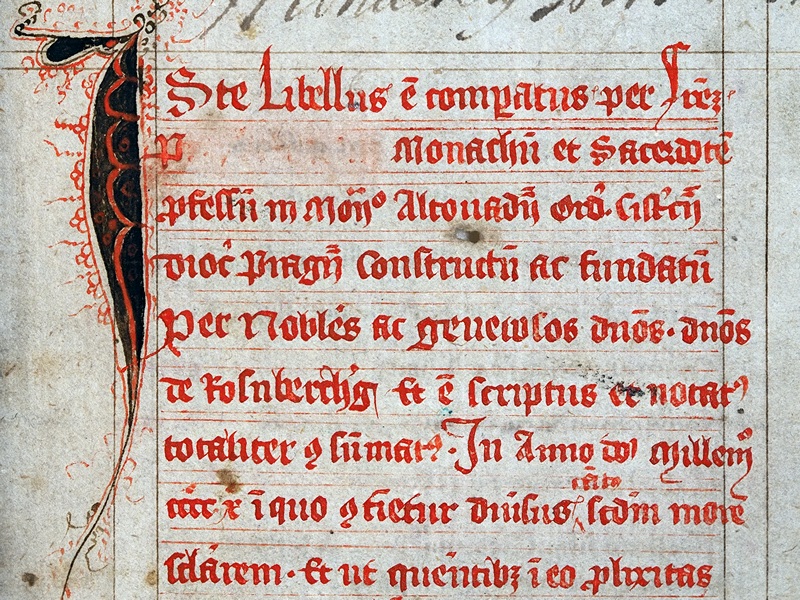 Iste Libellus ē comꝑatus per frēȝ
P Monachū et Sacerdotē
ꝓfessū in Mōn̄o Altouadn̄ Ord. Cist̄cn̄
dioc̄ Pragn̄ Constructū ac fundatū
Per Nobles ac generosos dnōs · dnōs
de Rosnberch Et ē scriptus et notatꝰ
totaliter ꝯsūmatꝰ. In Anno do Millem̄
cccc x ī quo ꝯtīetur diuisus cātꝰ scdm morē
sclārem · Et ut querītibꝫ ī eo ꝓlixitas